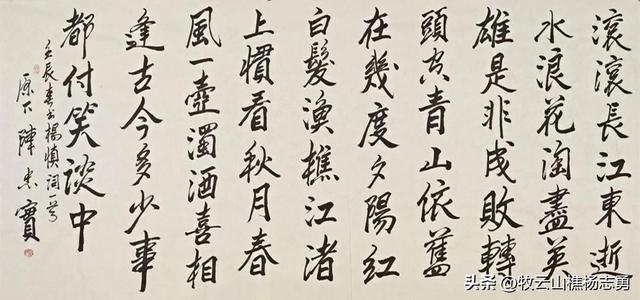 滚滚長江東逝
水浪花淘盡英
雄是非成敗轉
頭空青山依舊
在幾度夕陽紅
白髮漁樵江渚
上慣看秋月春
風一壺濁酒喜相
逢古今多少事
都付笑談中
壬辰春书楊慎詞
原下陳忠實
头条 @牧云山樵杨志勇